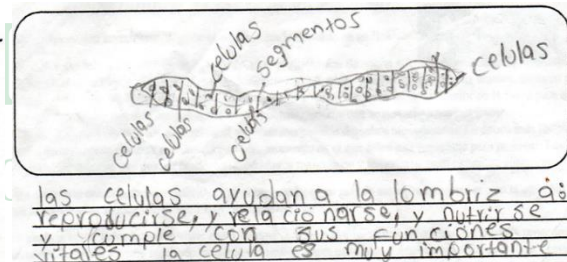 celulas
segmentos
celulas
celulas
celulas
celulas
las celulas ayudan a la lombriz a:
reproducirse, y relacionarse, y nutrirse
y cumple con sus funciones
vitales la celula es muy importante